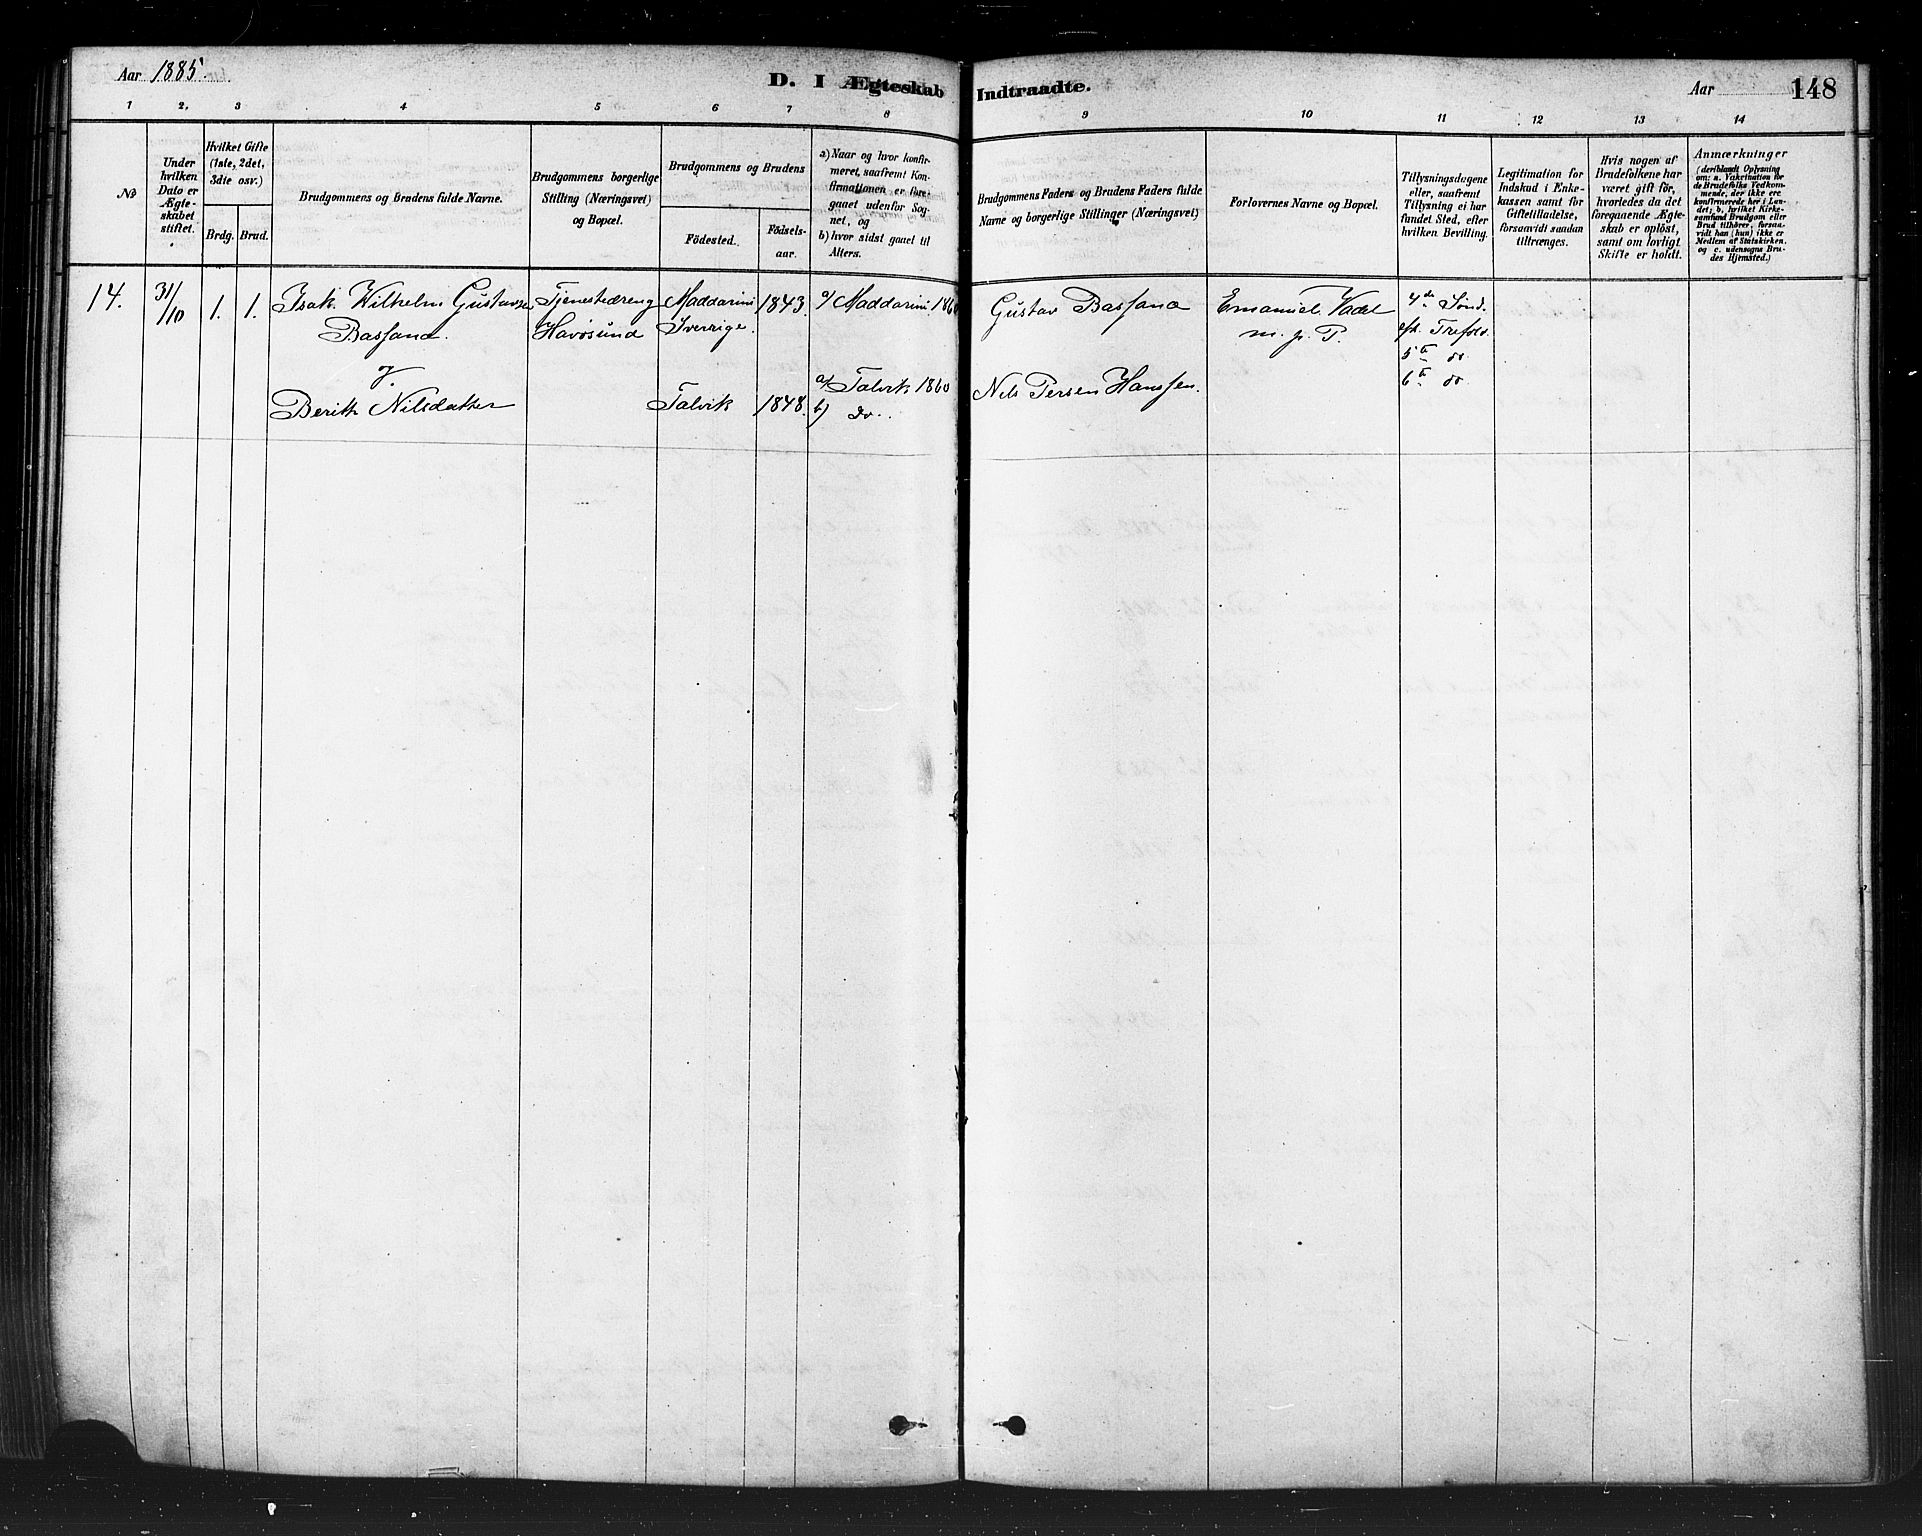 Aar 1885.
D. I Ægteskab Indtraadte.
Aar 148
1 2, 3 4 5 6 7 8 9 10 11 12 13 14
No
Under hvilken Dato er Ægteskabet stiftet.
Hvilket Gifte (1ste, 2det, 3die osv.)
Brdg. Brud.
Brudgommens og Brudens fulde Navne.
Brudgommens borgerlige Stilling (Næringsvei) og Bopæl.
Brudgommens og Brudens
Födested.
Födselsaar.
a) Naar og hvor konfirmeret, saafremt Konfirmationen er foregaaet udenfor Sognet, og
b) hvor sidst gaaet til Alters.
Brudgommens Faders og Brudens Faders fulde Navne og borgerlige Stillinger (Næringsvei)
Forlovernes Navne og Bopæl.
Tillysningsdagene eller, saafremt Tillysning ei har fundet Sted, efter hvilken Bevilling.
Legitimation for Indskud i Enkekassen samt for Giftetilladelse, forsaavidt saadan tiltrænges.
Hvis nogen af Brudefolkene har været gift før, hvorledes da det foregaaende Ægteskab er opløst, samt om lovligt Skifte er holdt.
Anmærkninger
(deriblandt Oplysning om: a. Vakcination for de Brudefolks Vedkommende, der ikke ere konfirmerede her i Landet; b. hvilket Kirkesamfund Brudgom eller Brud tilhører, forsaavidt han (hun) ikke er Medlem af Statskirken. og c. udensogns Brudes Hjemsted.)
14. 31/10 1. 1. Isak Wilhelm Gustavsen Tjenestedreng Maddarini 1843. a/ Maddarini 1860 Gustav Bassana Emanuel Vadel 4de Sönd.
Bassana. Havösund Sverrige. m. p. P. eft. Trefold.
5te do
J. a/ Talvik 1860 Nils Persen Hanssen. 6te do
Berith Nilsdatter Talvik 1848. b) do.